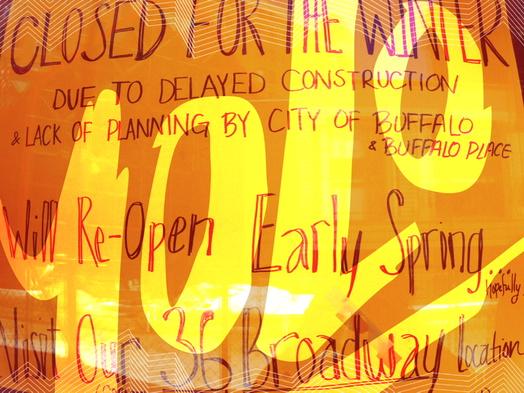 CLOSED FOR THE WINTER
DUE TO DELAYED CONSTRUCTION
& LACK OF PLANNING BY CITY OF BUFFALO
& BUFFALO PLACE
Will Re-Open Early Spring
Hopefully
Visit Our 36 Broadway Location
yolo